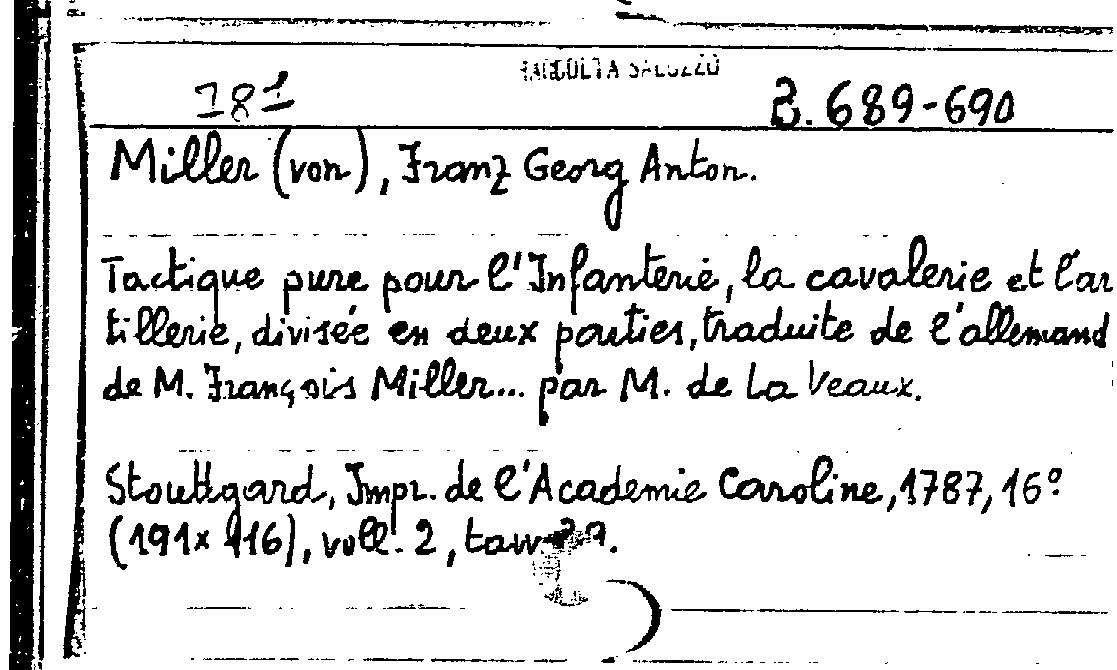 RACCOLTA SALUZZO
181 B. 689-690
Miller (von), Franz Georg Anton.
Tactique pure pour l'Infanterie, la cavalerie et l'ar
tillerie, divisée en deux parties, traduite de l'allemand
de M. François Miller... par M. de La Veaux.
Stouttgard, Impr. de l'Academie Caroline, 1787, 16º
(191x116), voll. 2, tavv.